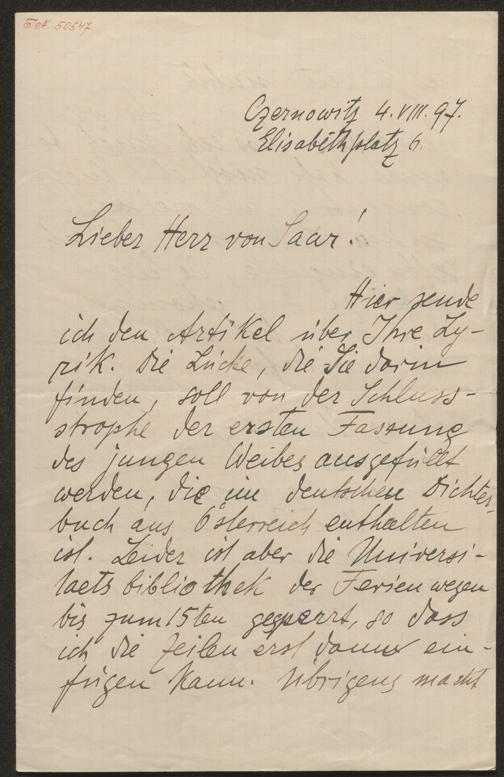 I.N. 50547
Czernowitz 4.VIII.97.
Elisabethplatz 6.
Lieber Herr von Saar!
Hier sende
ich den Artikel über Ihre Ly-
rik. Die Lücke, die Sie darin
finden, soll von der Schluss-
strophe der ersten Fassung
des jungen Weibes ausgefüllt
werden, die im deutschen Dichter-
buch aus Österreich enthalten
ist. Leider ist aber die Universi-
taetsbibliothek der Ferien wegen
bis zum 15ten gesperrt, so dass
ich die Zeilen erst dann ein-
fügen kann. Übrigens macht